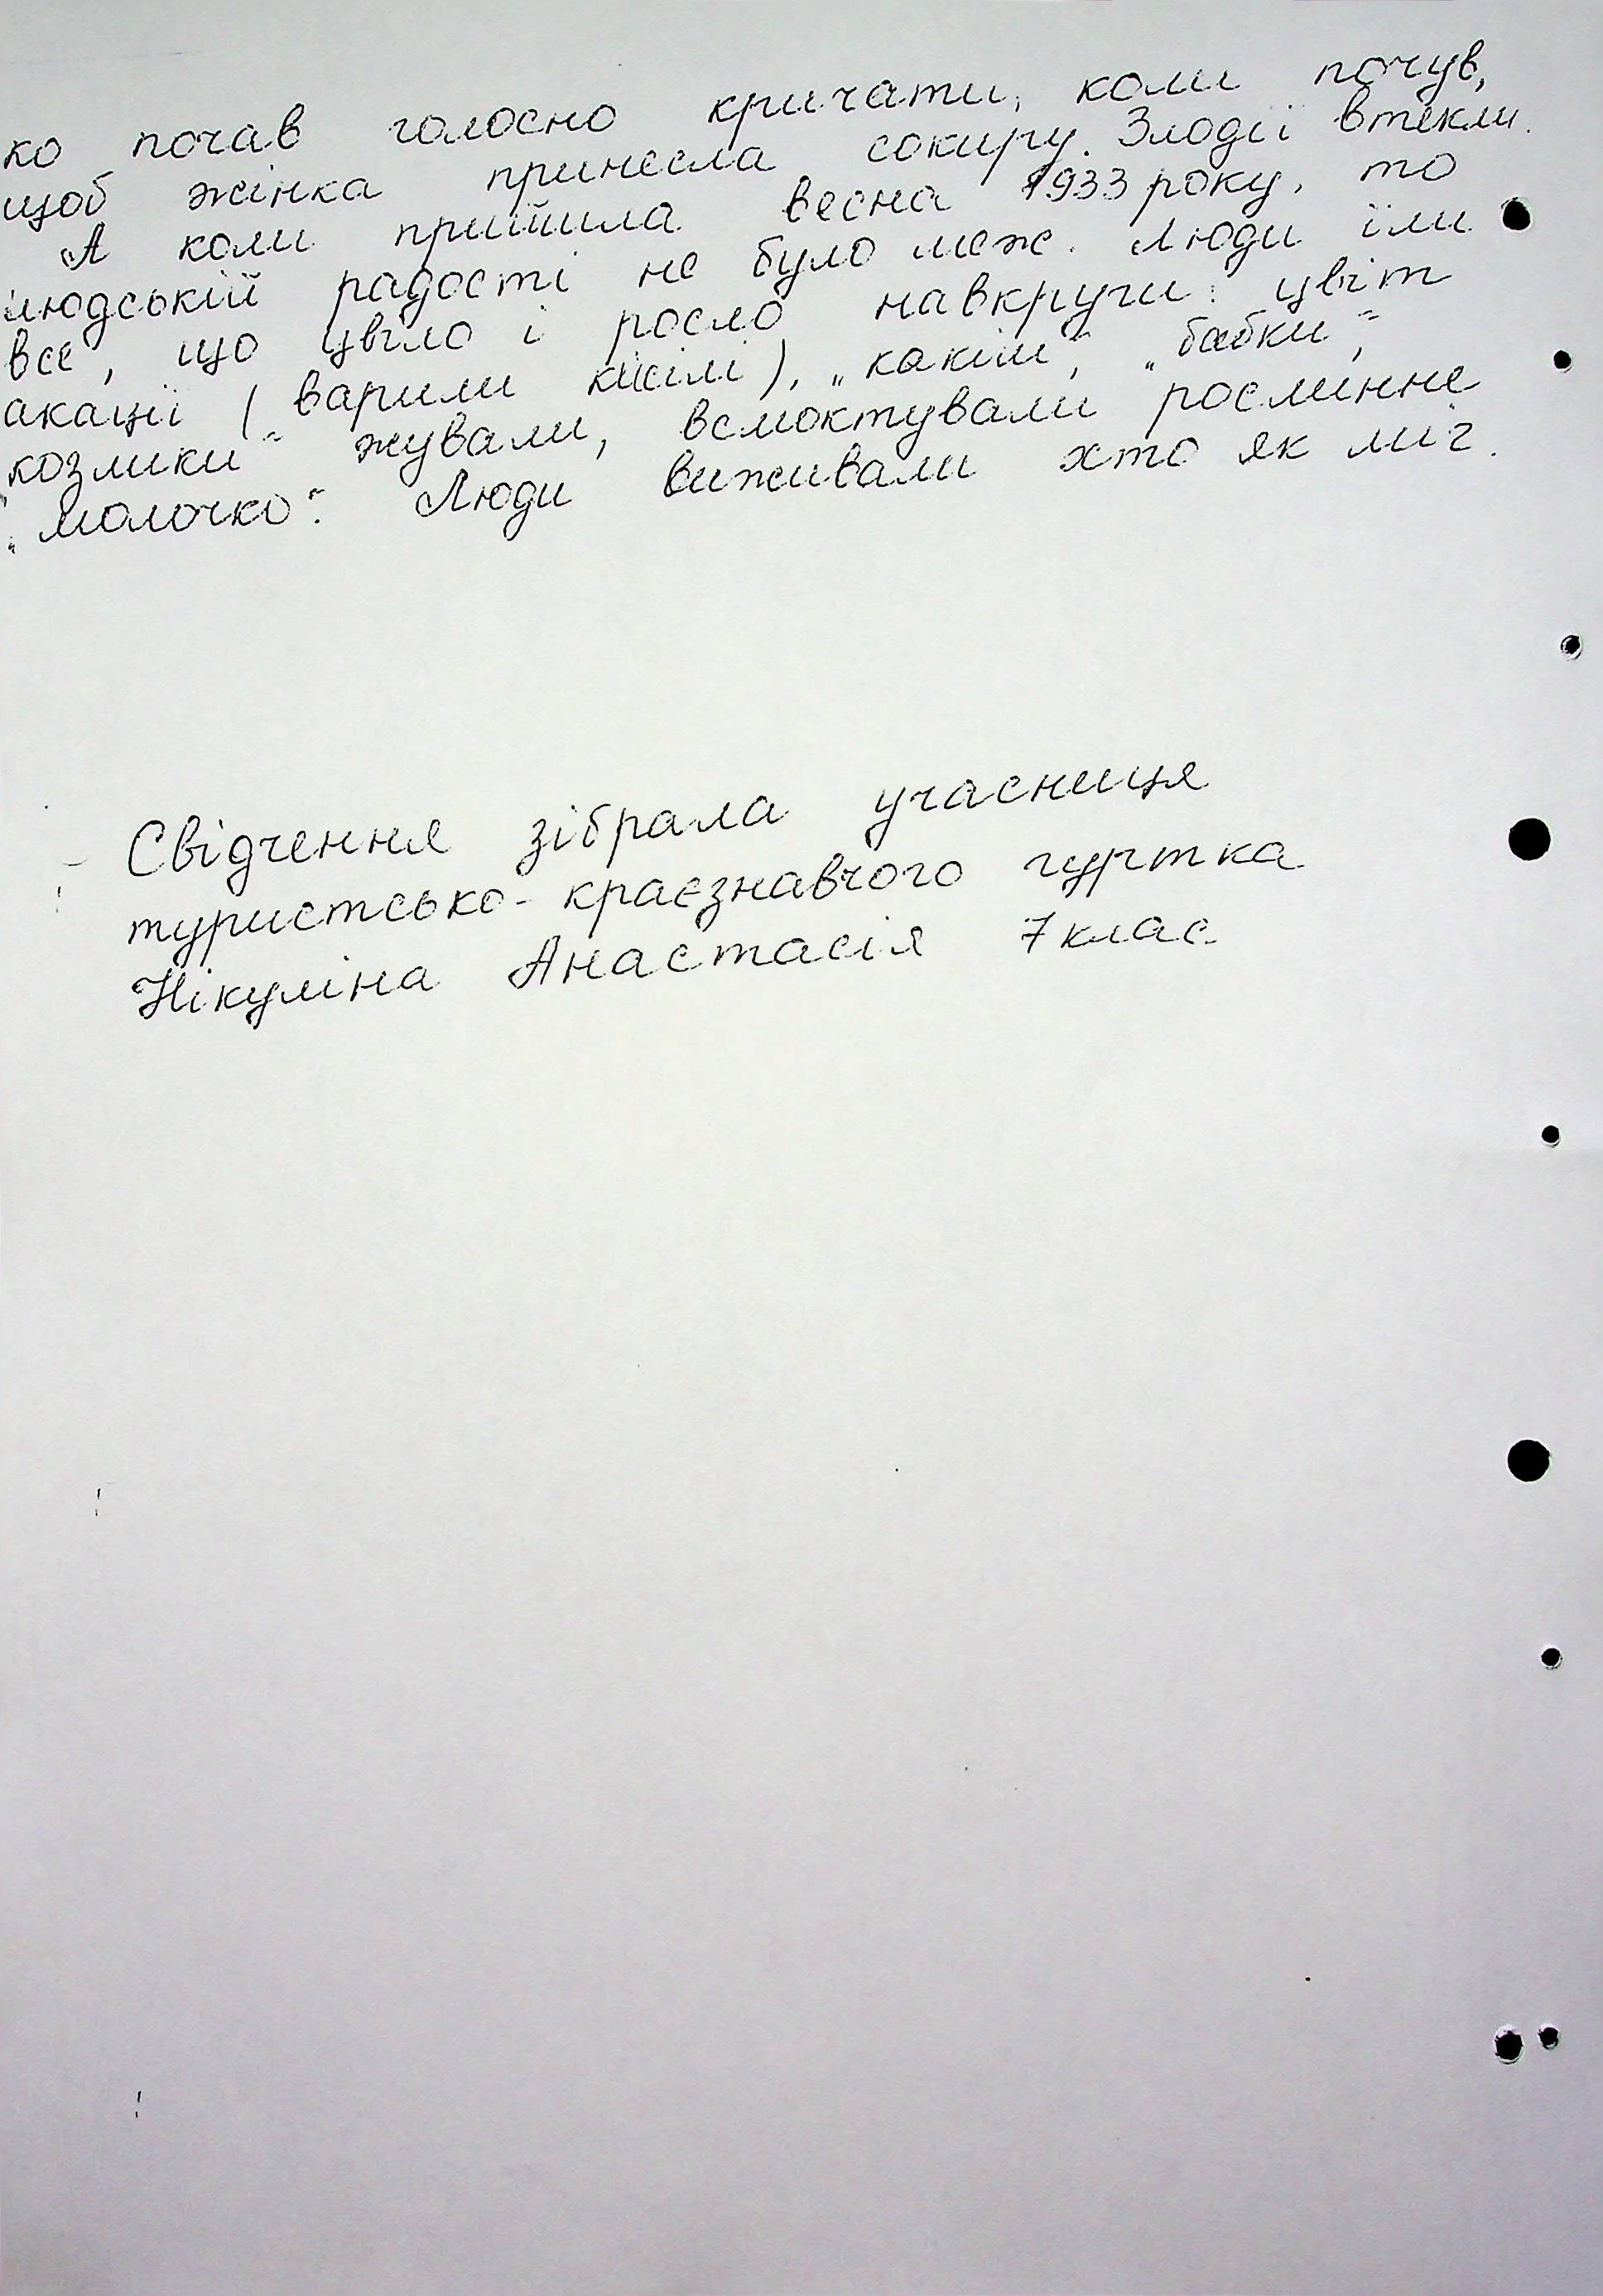 ко почав голосно кричати, коли почув,
щоб жінка принесла сокиру. Злодії втекли.
А коли прийшла весна 1933 року, то
людській радості не було меж. Люди їли
все, що цвіло і росло навкруги: цвіт
акації (варили кисілі), „какіш", „бабки",
„козлики" жували, всмоктували рослинне
„молочко". Люди виживали хто як міг.
Свідчення зібрала учасниця
туристсько-краєзнавчого гуртка
Нікуліна Анастасія 7 клас